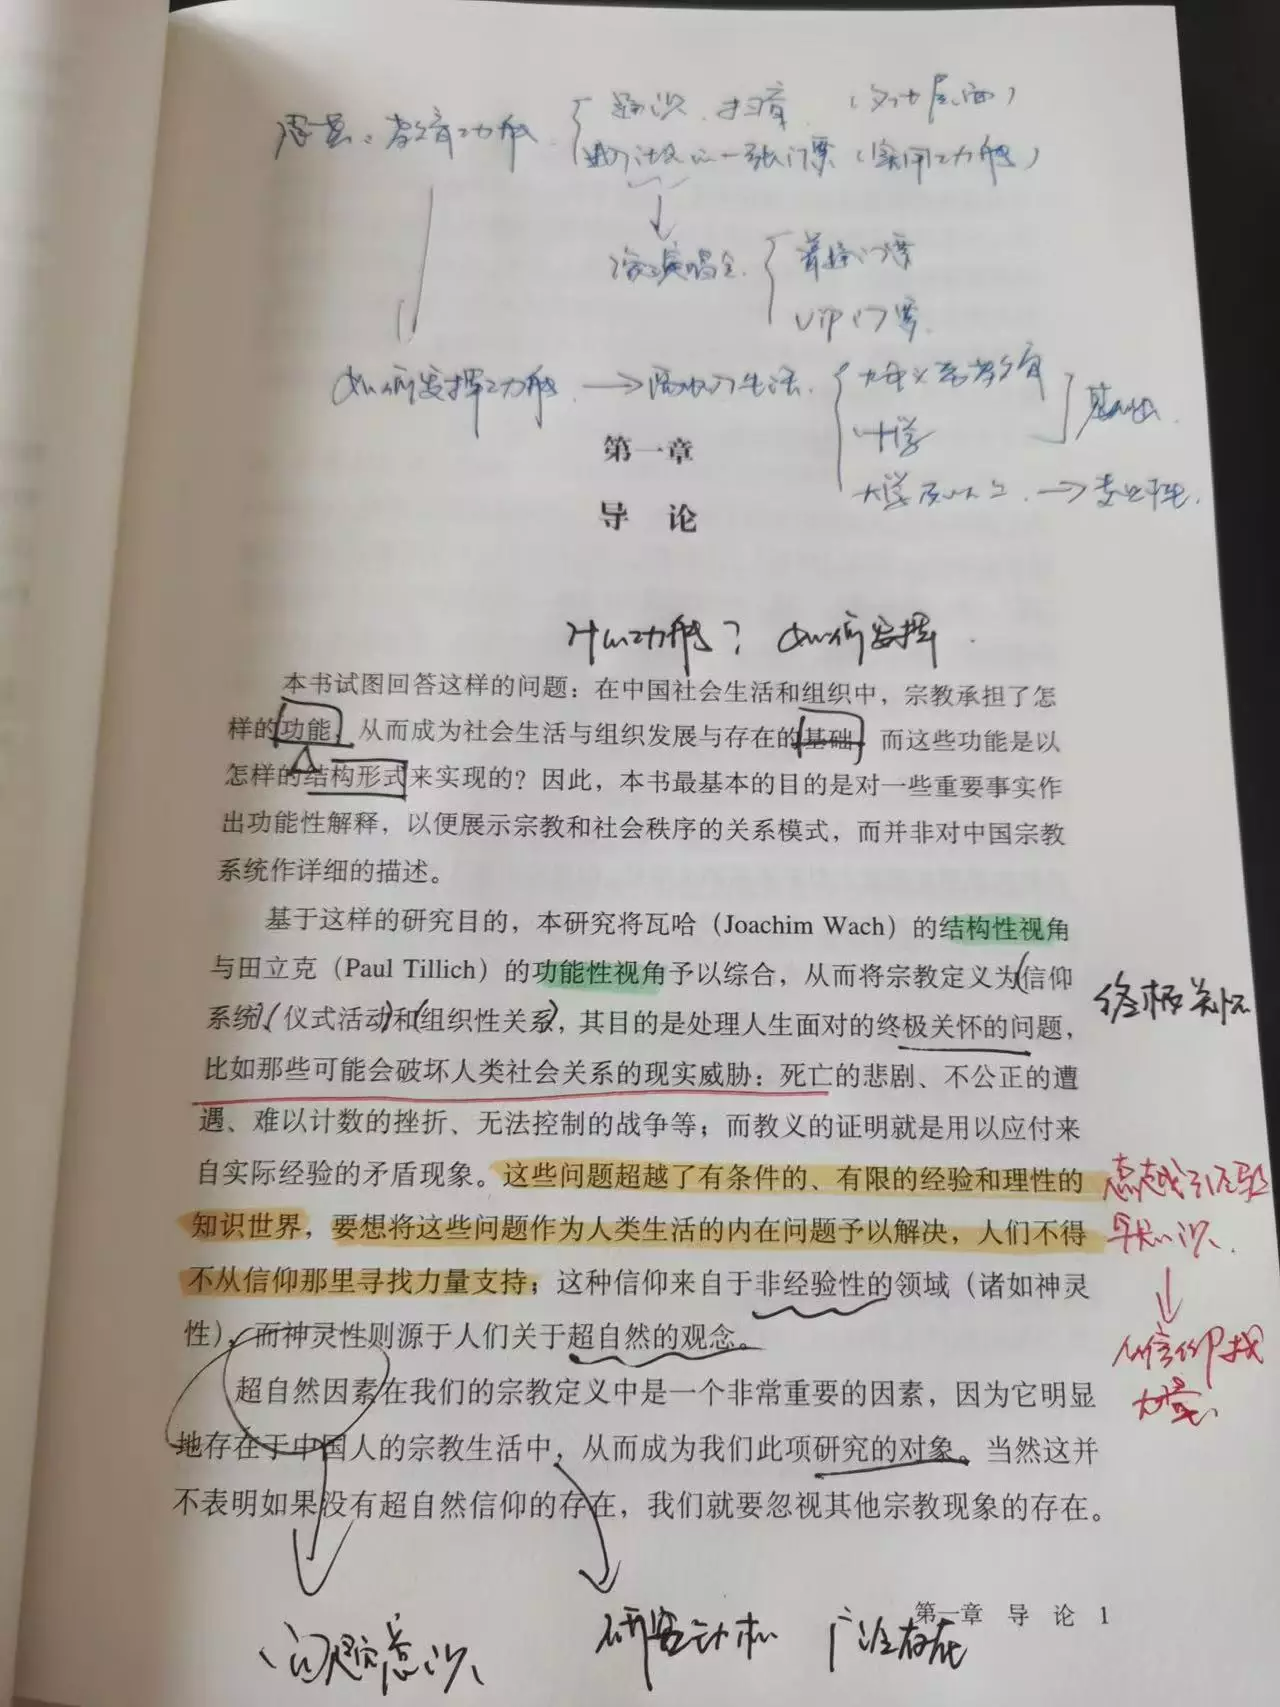 教育功能
通识、扫盲 (文化层面)
一张门票 (实用功能)
演唱会
普通门票
VIP门票
如何发挥功能 → 生活
九年义务教育
中学
大学及以上 → 专业性
基础性
第一章
导 论
什么功能? 如何发挥
本书试图回答这样的问题：在中国社会生活和组织中，宗教承担了怎
样的功能，从而成为社会生活与组织发展与存在的基础，而这些功能是以
怎样的结构形式来实现的？因此，本书最基本的目的是对一些重要事实作
出功能性解释，以便展示宗教和社会秩序的关系模式，而并非对中国宗教
系统作详细的描述。
基于这样的研究目的，本研究将瓦哈（Joachim Wach）的结构性视角
与田立克（Paul Tillich）的功能性视角予以综合，从而将宗教定义为信仰
系统、仪式活动和组织性关系，其目的是处理人生面对的终极关怀的问题，
终极关怀
比如那些可能会破坏人类社会关系的现实威胁：死亡的悲剧、不公正的遭
遇、难以计数的挫折、无法控制的战争等；而教义的证明就是用以应付来
自实际经验的矛盾现象。这些问题超越了有条件的、有限的经验和理性的
知识世界，要想将这些问题作为人类生活的内在问题予以解决，人们不得
不从信仰那里寻找力量支持；这种信仰来自于非经验性的领域（诸如神灵
性），而神灵性则源于人们关于超自然的观念。
超越
知识
↓
从信仰找
力量
超自然因素在我们的宗教定义中是一个非常重要的因素，因为它明显
地存在于中国人的宗教生活中，从而成为我们此项研究的对象。当然这并
不表明如果没有超自然信仰的存在，我们就要忽视其他宗教现象的存在。
第一章 导 论 1
问题意识
研究动机 广泛存在